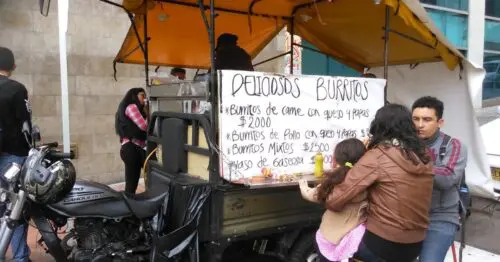 DELICIOSOS BURRITOS
*Burritos de carne con queso y papas
$2000
*Burritos de Pollo con queso y papas
*Burritos Mixtos $2500
*Vaso de Gaseosa